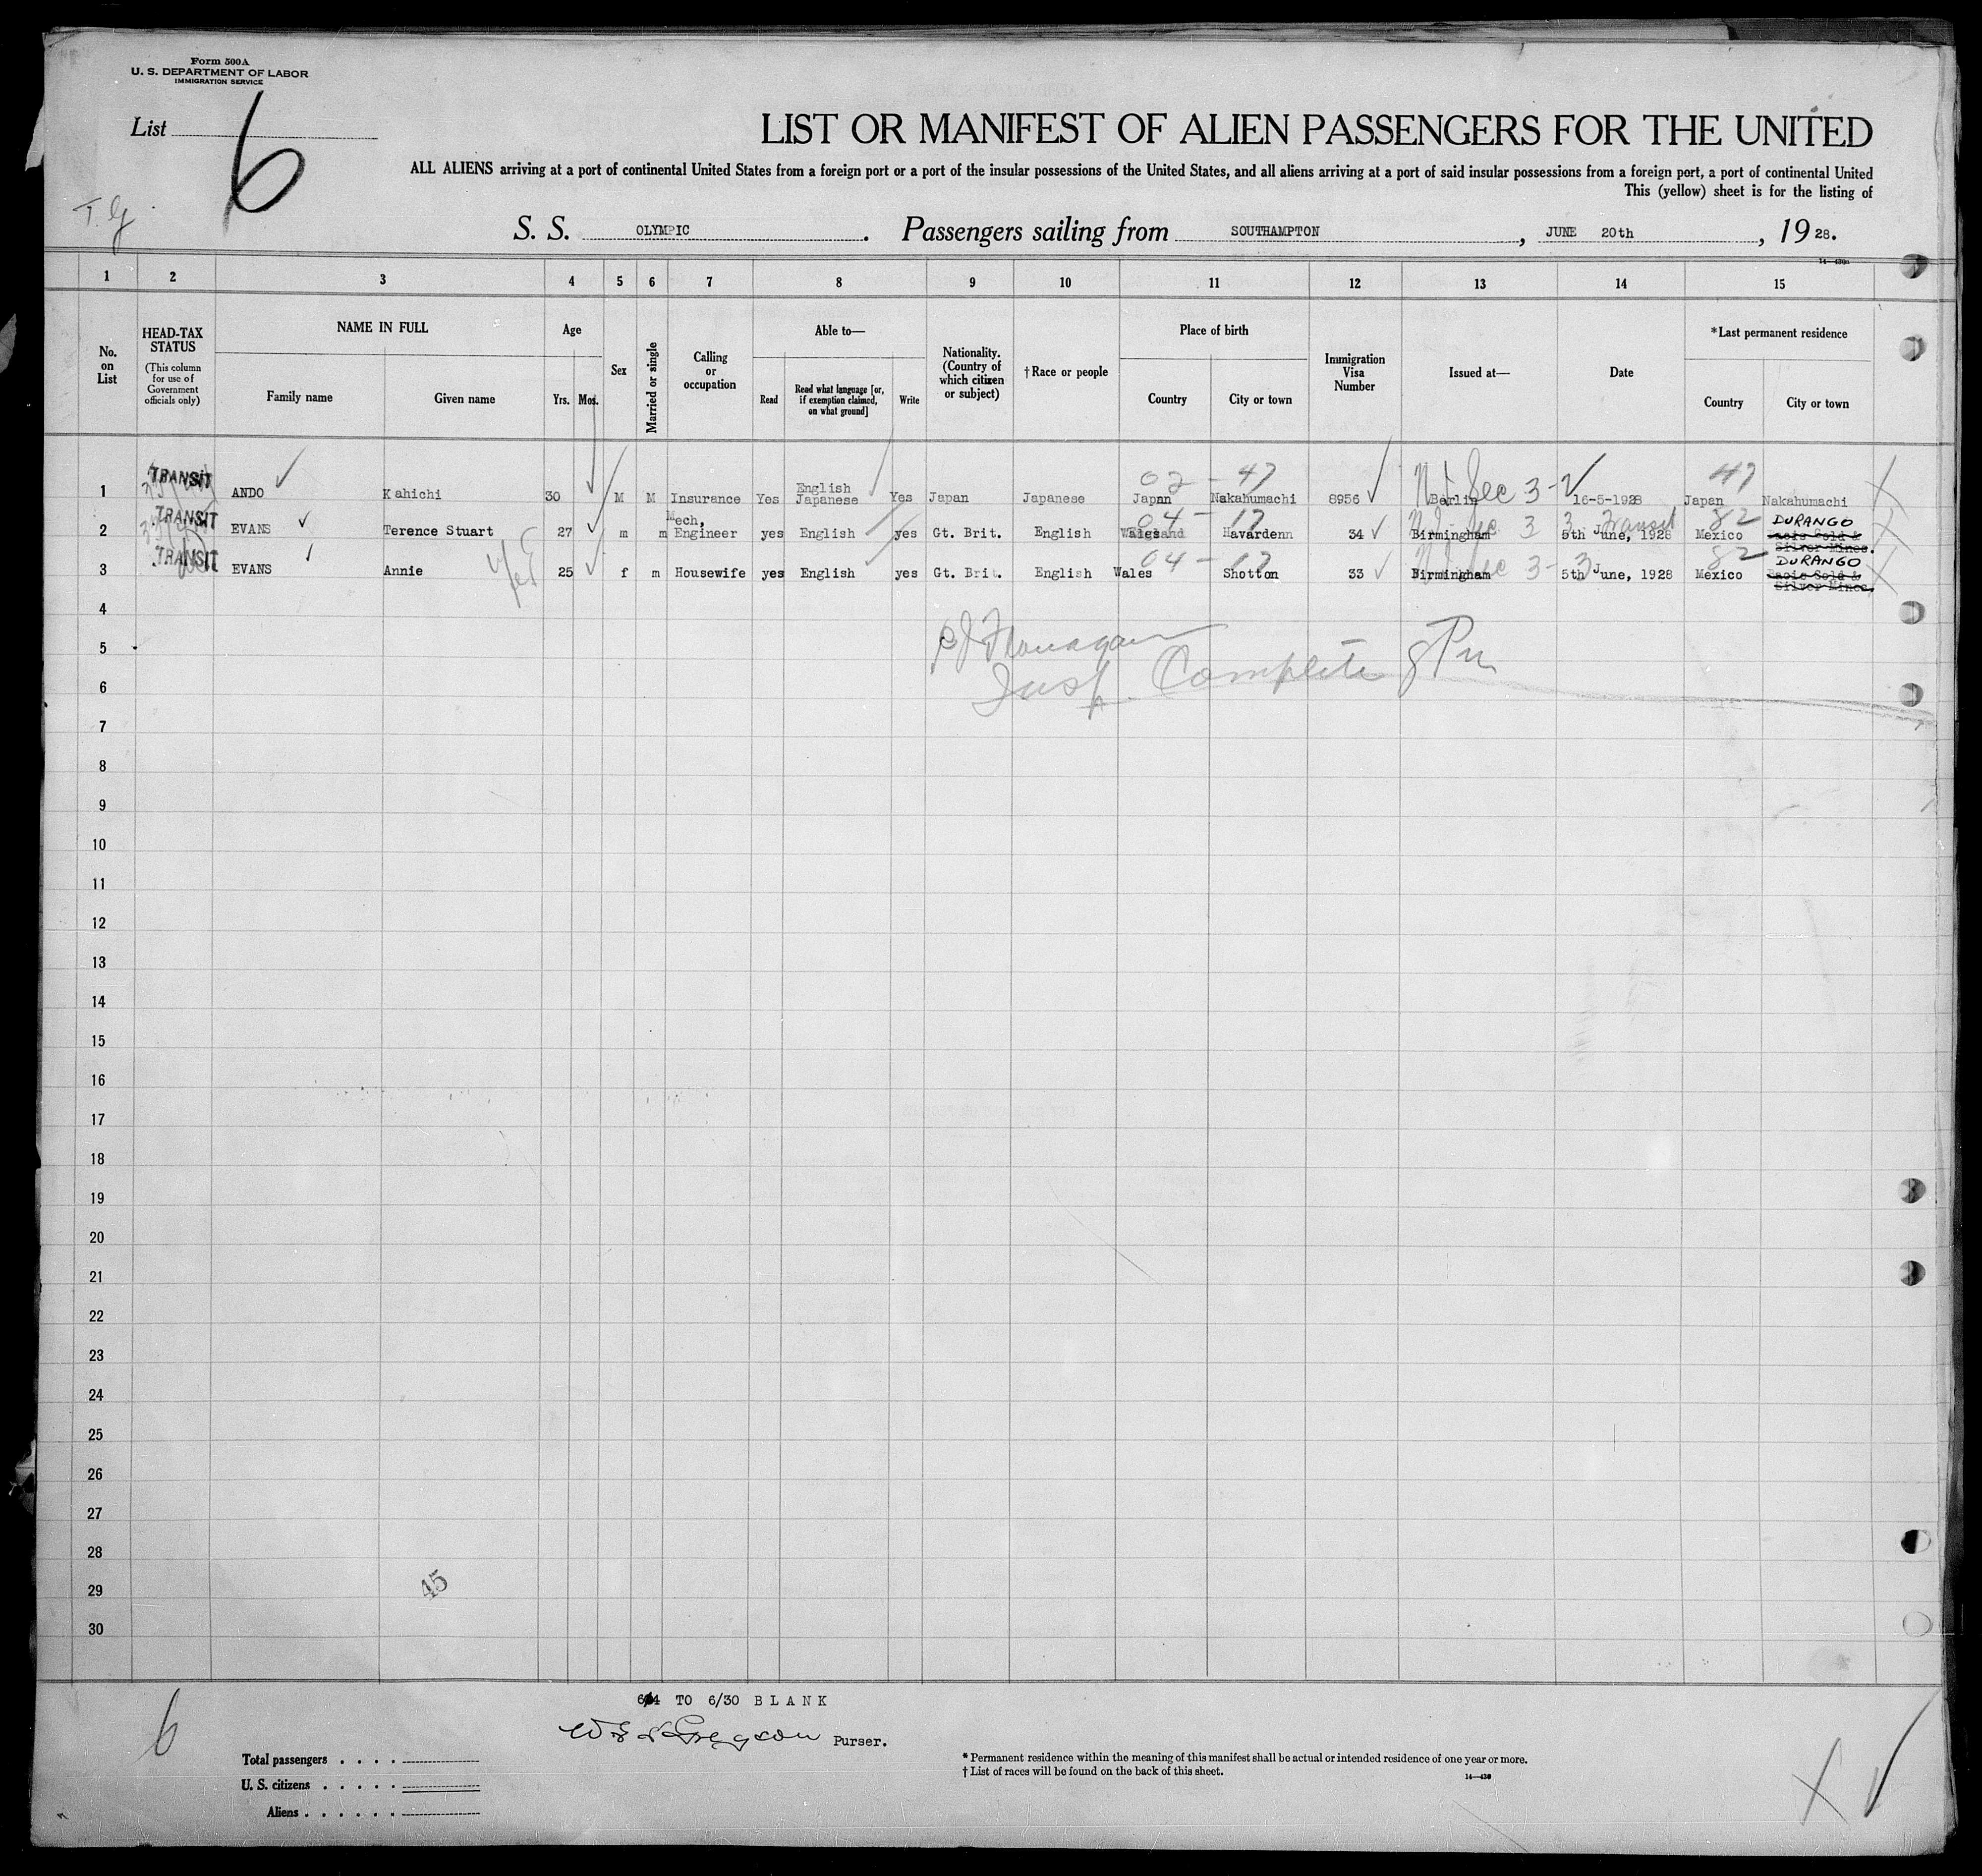 Form 500A
U. S. DEPARTMENT OF LABOR
IMMIGRATION SERVICE
List 6
T. G.
LIST OR MANIFEST OF ALIEN PASSENGERS FOR THE UNITED
ALL ALIENS arriving at a port of continental United States from a foreign port or a port of the insular possessions of the United States, and all aliens arriving at a port of said insular possessions from a foreign port, a port of continental United
This (yellow) sheet is for the listing of
S. S. OLYMPIC. Passengers sailing from SOUTHAMPTON, JUNE 20th, 1928.
1 2 3 4 5 6 7 8 9 10 11 12 13 14 15
No. on List
HEAD-TAX STATUS
(This column for use of Government officials only)
NAME IN FULL
Family name Given name
Age
Yrs. Mos.
Sex
Married or single
Calling or occupation
Able to—
Read
Read what language [or, if exemption claimed, on what ground]
Write
Nationality. (Country of which citizen or subject)
†Race or people
Place of birth
Country City or town
Immigration Visa Number
Issued at—
Date
*Last permanent residence
Country City or town
02 - 47 Sec 3-2 47
1 TRANSIT ANDO Kahichi 30 M M Insurance Yes English Japanese Yes Japan Japanese Japan Nakahumachi 8956 Berlin 16-5-1928 Japan Nakahumachi
04 - 17 Sec 3 3 Transit 82
2 TRANSIT EVANS Terence Stuart 27 m m Mech, Engineer yes English yes Gt. Brit. English Wales Havardenn 34 Birmingham 5th June, 1928 Mexico DURANGO
Silver Mines.
04 - 17 3-3 82
3 TRANSIT EVANS Annie 25 f m Housewife yes English yes Gt. Brit. English Wales Shotton 33 Birmingham 5th June, 1928 Mexico DURANGO
Silver Mines.
4
5 Flanagan
6 Insp. Complete
7
8
9
10
11
12
13
14
15
16
17
18
19
20
21
22
23
24
25
26
27
28
29 45
30
6/4 TO 6/30 BLANK
6
Purser.
Total passengers
U. S. citizens
Aliens
* Permanent residence within the meaning of this manifest shall be actual or intended residence of one year or more.
† List of races will be found on the back of this sheet.
14—430